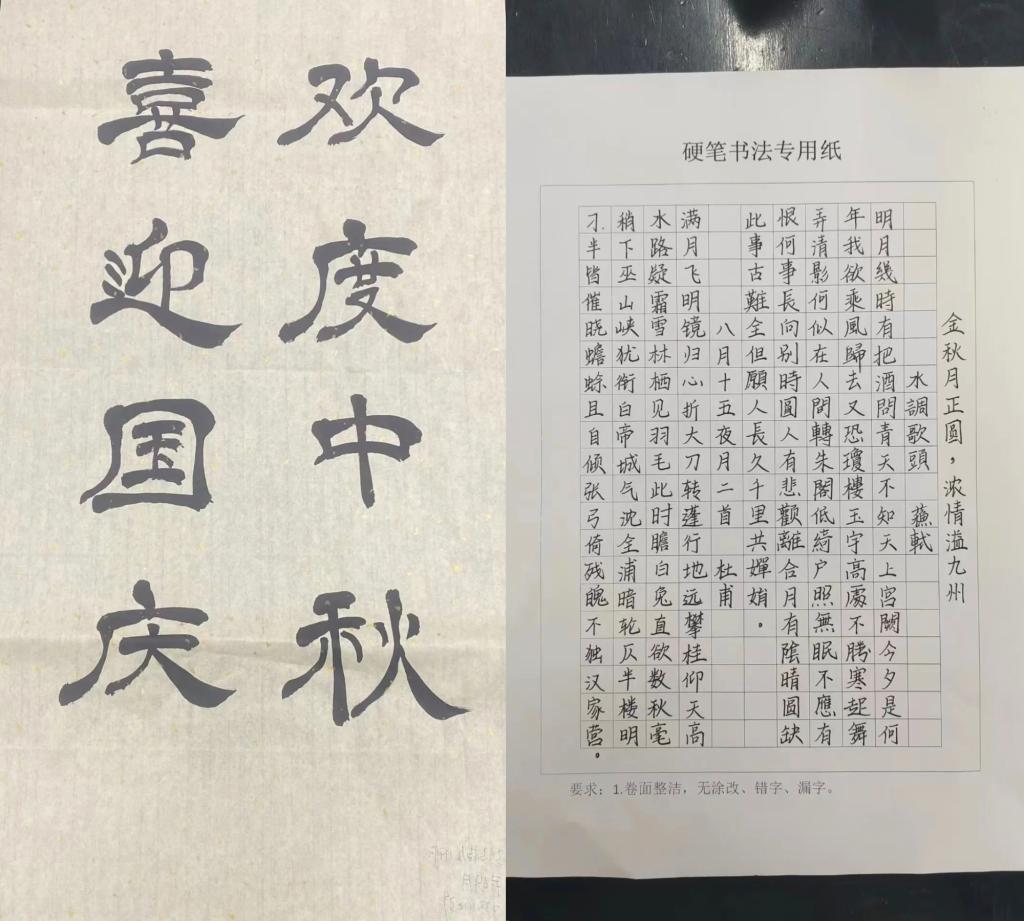 欢度中秋
喜迎国庆
硬笔书法专用纸
金秋月正圆，浓情溢九州
水調歌頭 蘇軾
明月幾時有把酒問青天不知天上宮闕今夕是何
年我欲乘風歸去又恐瓊樓玉宇高處不勝寒起舞
弄清影何似在人間轉朱閣低綺户照無眠不應有
恨何事長向别時圓人有悲歡離合月有陰晴圓缺
此事古難全但願人長久千里共嬋娟。
八月十五夜月二首 杜甫
满月飞明镜归心折大刀转蓬行地远攀桂仰天高
水路疑霜雪林栖见羽毛此时瞻白兔直欲数秋毫
稍下巫山峡犹衔白帝城气沈全浦暗轮仄半楼明
刁半皆催晓蟾蜍且自倾张弓倚残魄不独汉家营。
要求：1.卷面整洁，无涂改、错字、漏字。